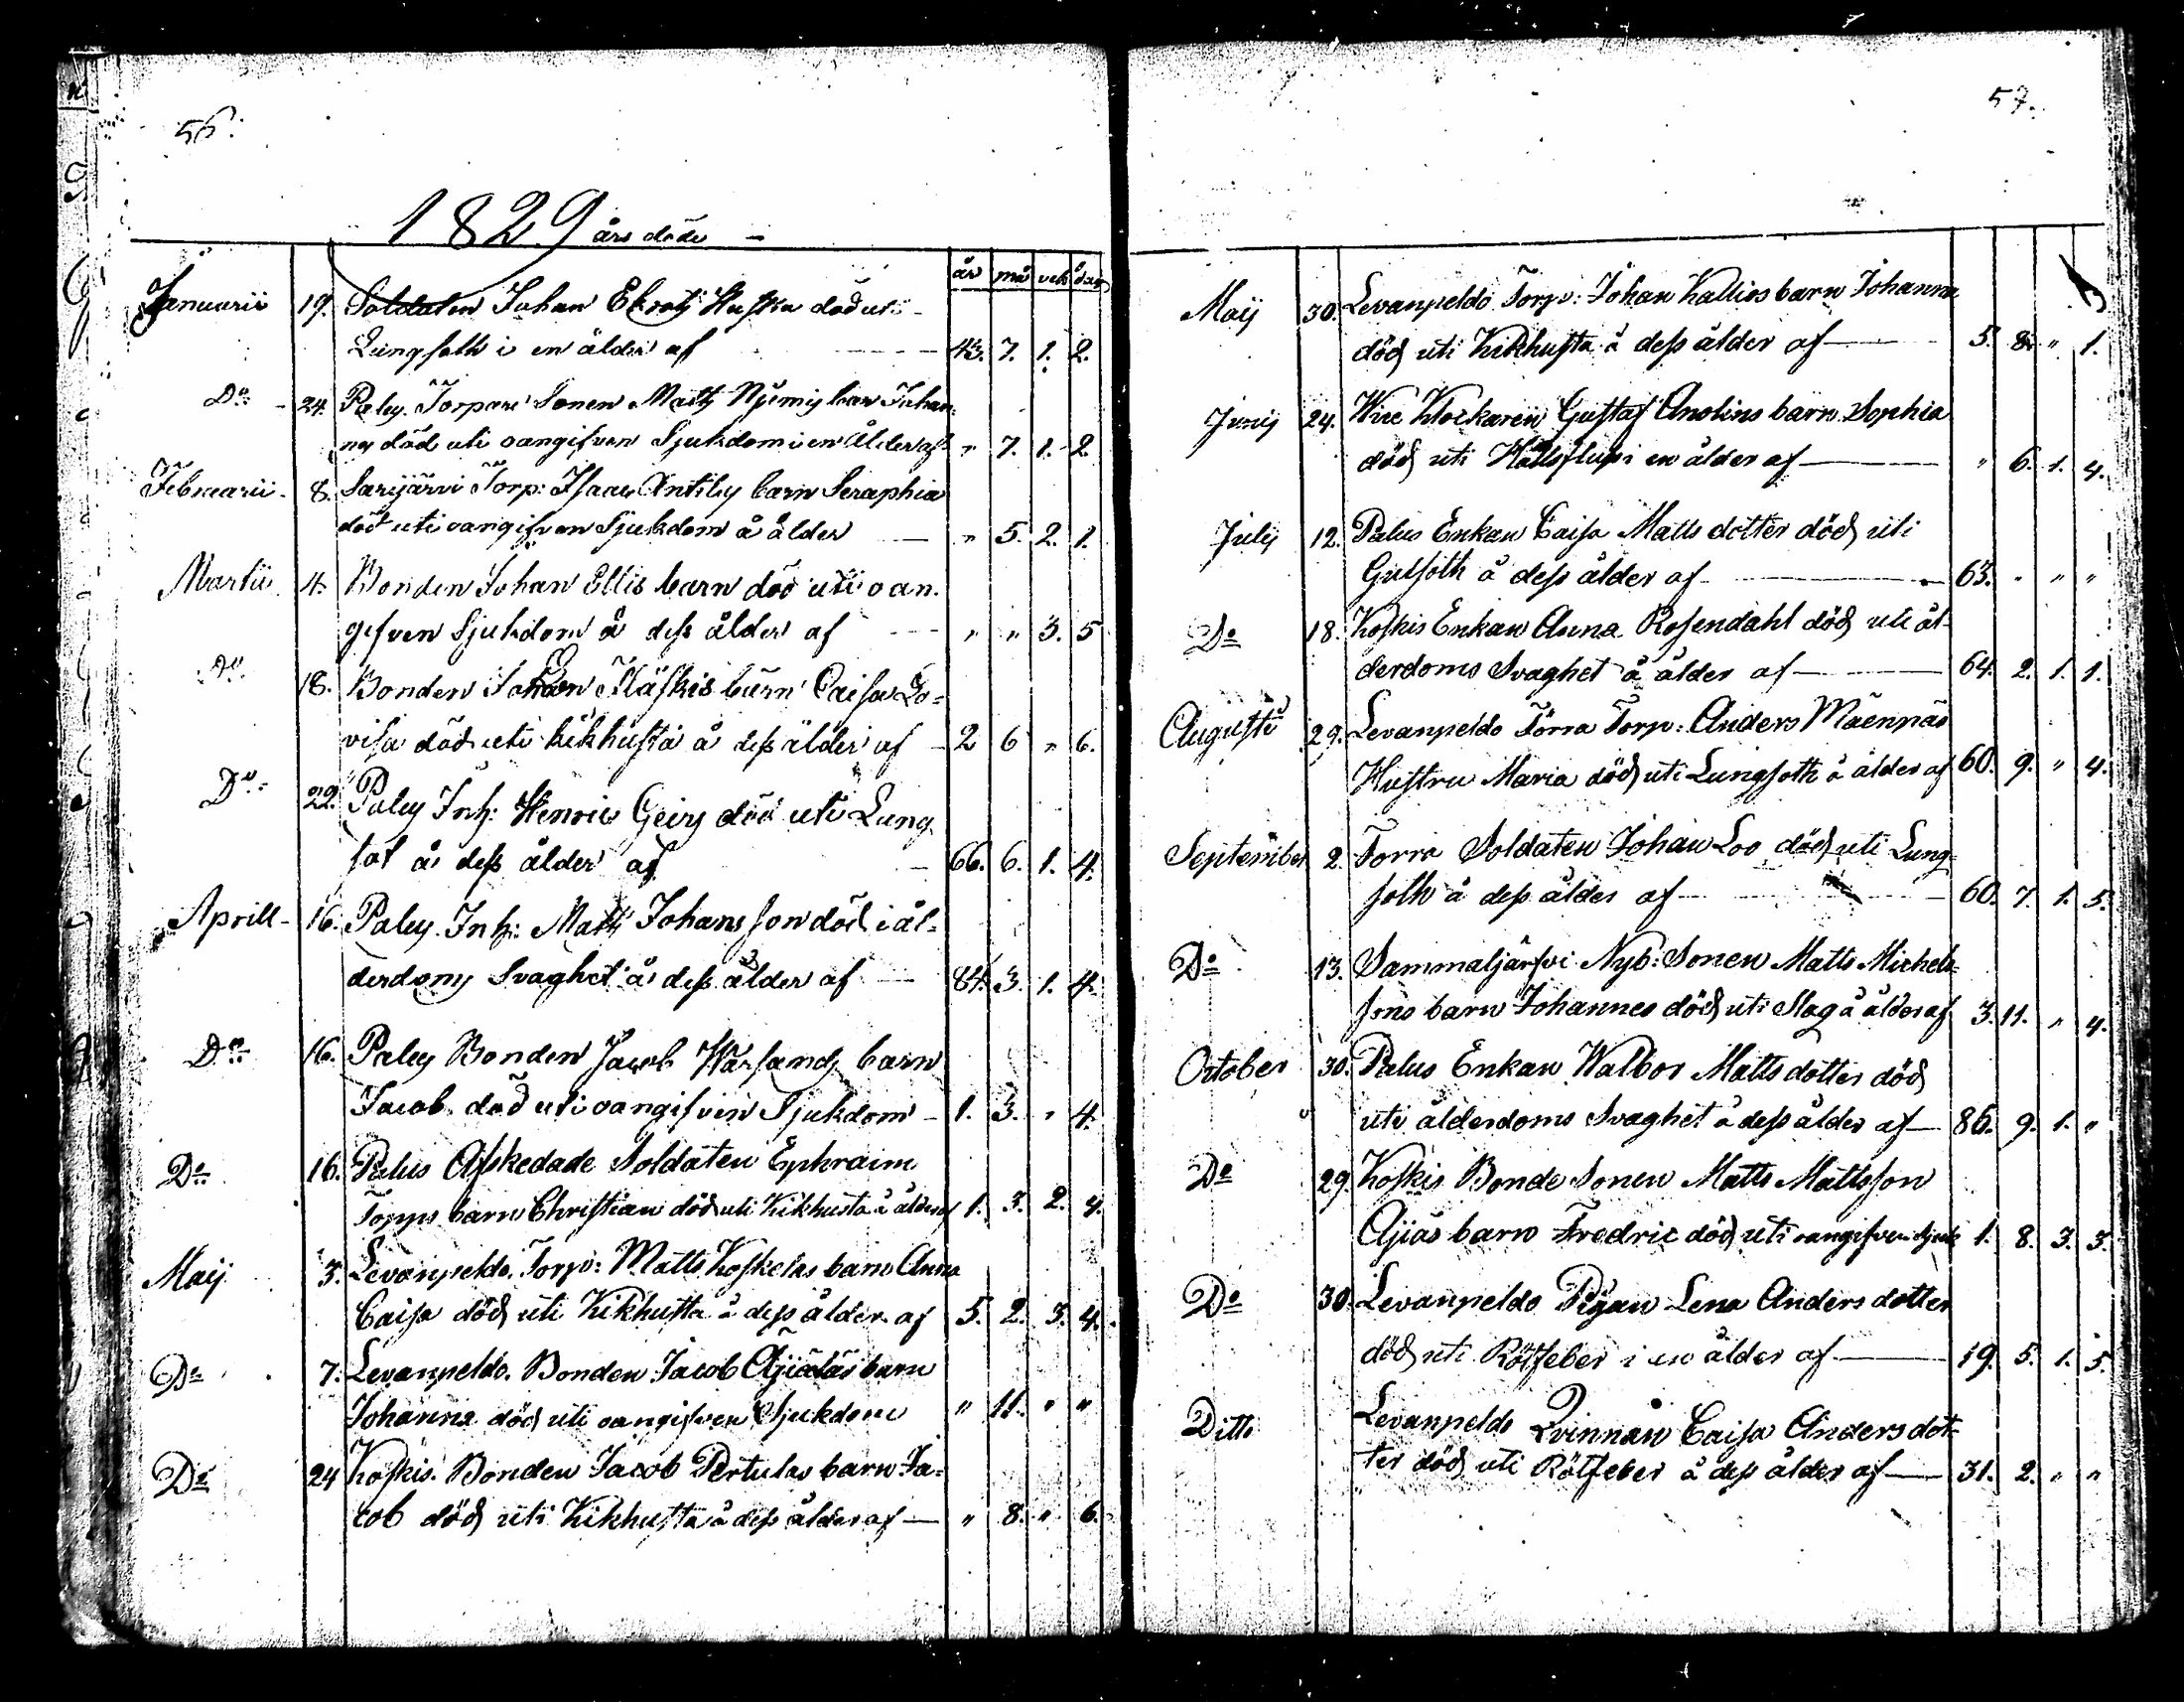 56.
1829 års döde
år må vek dag
Januarii 19. Soldaten Johan Ekrots Hustru död uti
Lungsoth i en ålder af 43. 7. 1. 2.
Do 24. Palus Torpare Sonen Matts Nyemis barn Johan-
nes död uti oangifven Sjukdom i en Ålder af " 7. 1. 2.
Februarii 8. Sarijärvi Torp: Isaac Antilas barn Seraphia
död uti oangifven Sjukdom å ålder " 5. 2. 1.
Martii 4. Bonden Johan Ellis barn död uti oan-
gifven Sjukdom å dess ålder af " " 3. 5
Do 18. Bonden Johan barn Caisa Lo-
visa död uti kikhusta å dess ålder af 2 6 " 6.
Do 22. Palus Inh: Henric Geirs död uti Lung
sot å dess ålder af 66. 6. 1. 4.
Aprill 16. Palus Inh: Matts Johansson död i ål-
derdoms Svaghet å dess ålder af 84. 3. 1. 4.
Do 16. Palus Bonden Jacob barn
Jacob död uti oangifven Sjukdom 1. 3. " 4.
Do 16. Palus Afskedade Soldaten Ephraim
Torps barn Christian död uti Kikhusta å ålder af 1. 3. 2. 4.
Maij 3. Levanpeldo Torp: Matts Koskelas barn Anna
Caisa död uti Kikhusta å dess ålder af 5. 2. 3. 4.
Do 7. Levanpeldo Bonden Jacob Äijäläs barn
Johanna död uti oangifven Sjukdom " 11. " "
Do 24 Koskis Bonden Jacob Pertulas barn Ja-
cob död uti Kikhusta å dess ålder af " 8. " 6.
57.
Maij 30. Levanpeldo Torp: Johan Kallios barn Johanna
död uti Kikhusta å dess ålder af 5. 8. " 1.
Junij 24. Wire Klockaren Gustaf Anolins barn Sophia
död uti i en ålder af " 6. 1. 4.
Julij 12. Palus Enkan Caisa Matts dotter död uti
Gulsoth å dess ålder af 63. " " "
Do 18. Koskis Enkan Anna Rosendahl död uti ål-
derdoms Svaghet å ålder af 64. 2. 1. 1.
Augusti 29. Levanpeldo Förra Torp: Anders Mäenpäs
Hustru Maria död uti Lungsoth å ålder af 60. 9. " 4.
September 2 Förra Soldaten Johan Loo död uti Lung-
soth å dess ålder af 60. 7. 1. 5.
Do 13. Sammaljärfvi Nyb: Sonen Matts Michels-
sons barn Johannes död uti Slag å ålder af 3. 11. " 4.
October 30. Palus Enkan Walbor Matts dotter död
uti ålderdoms Svaghet å dess ålder af 86. 9. 1. "
Do 29. Koskis Bonde Sonen Matts Mattsson
Äjiäs barn Fredric död uti oangifven Sjuk 1. 8. 3. 3.
Do 30. Levanpeldo Pigan Lena Anders dotter
död uti Rötfeber i en ålder af 19. 5. 1. 5.
Ditto Levanpeldo Qvinnan Caisa Anders dot-
ter död uti Rötfeber å dess ålder af 31. 2. " "